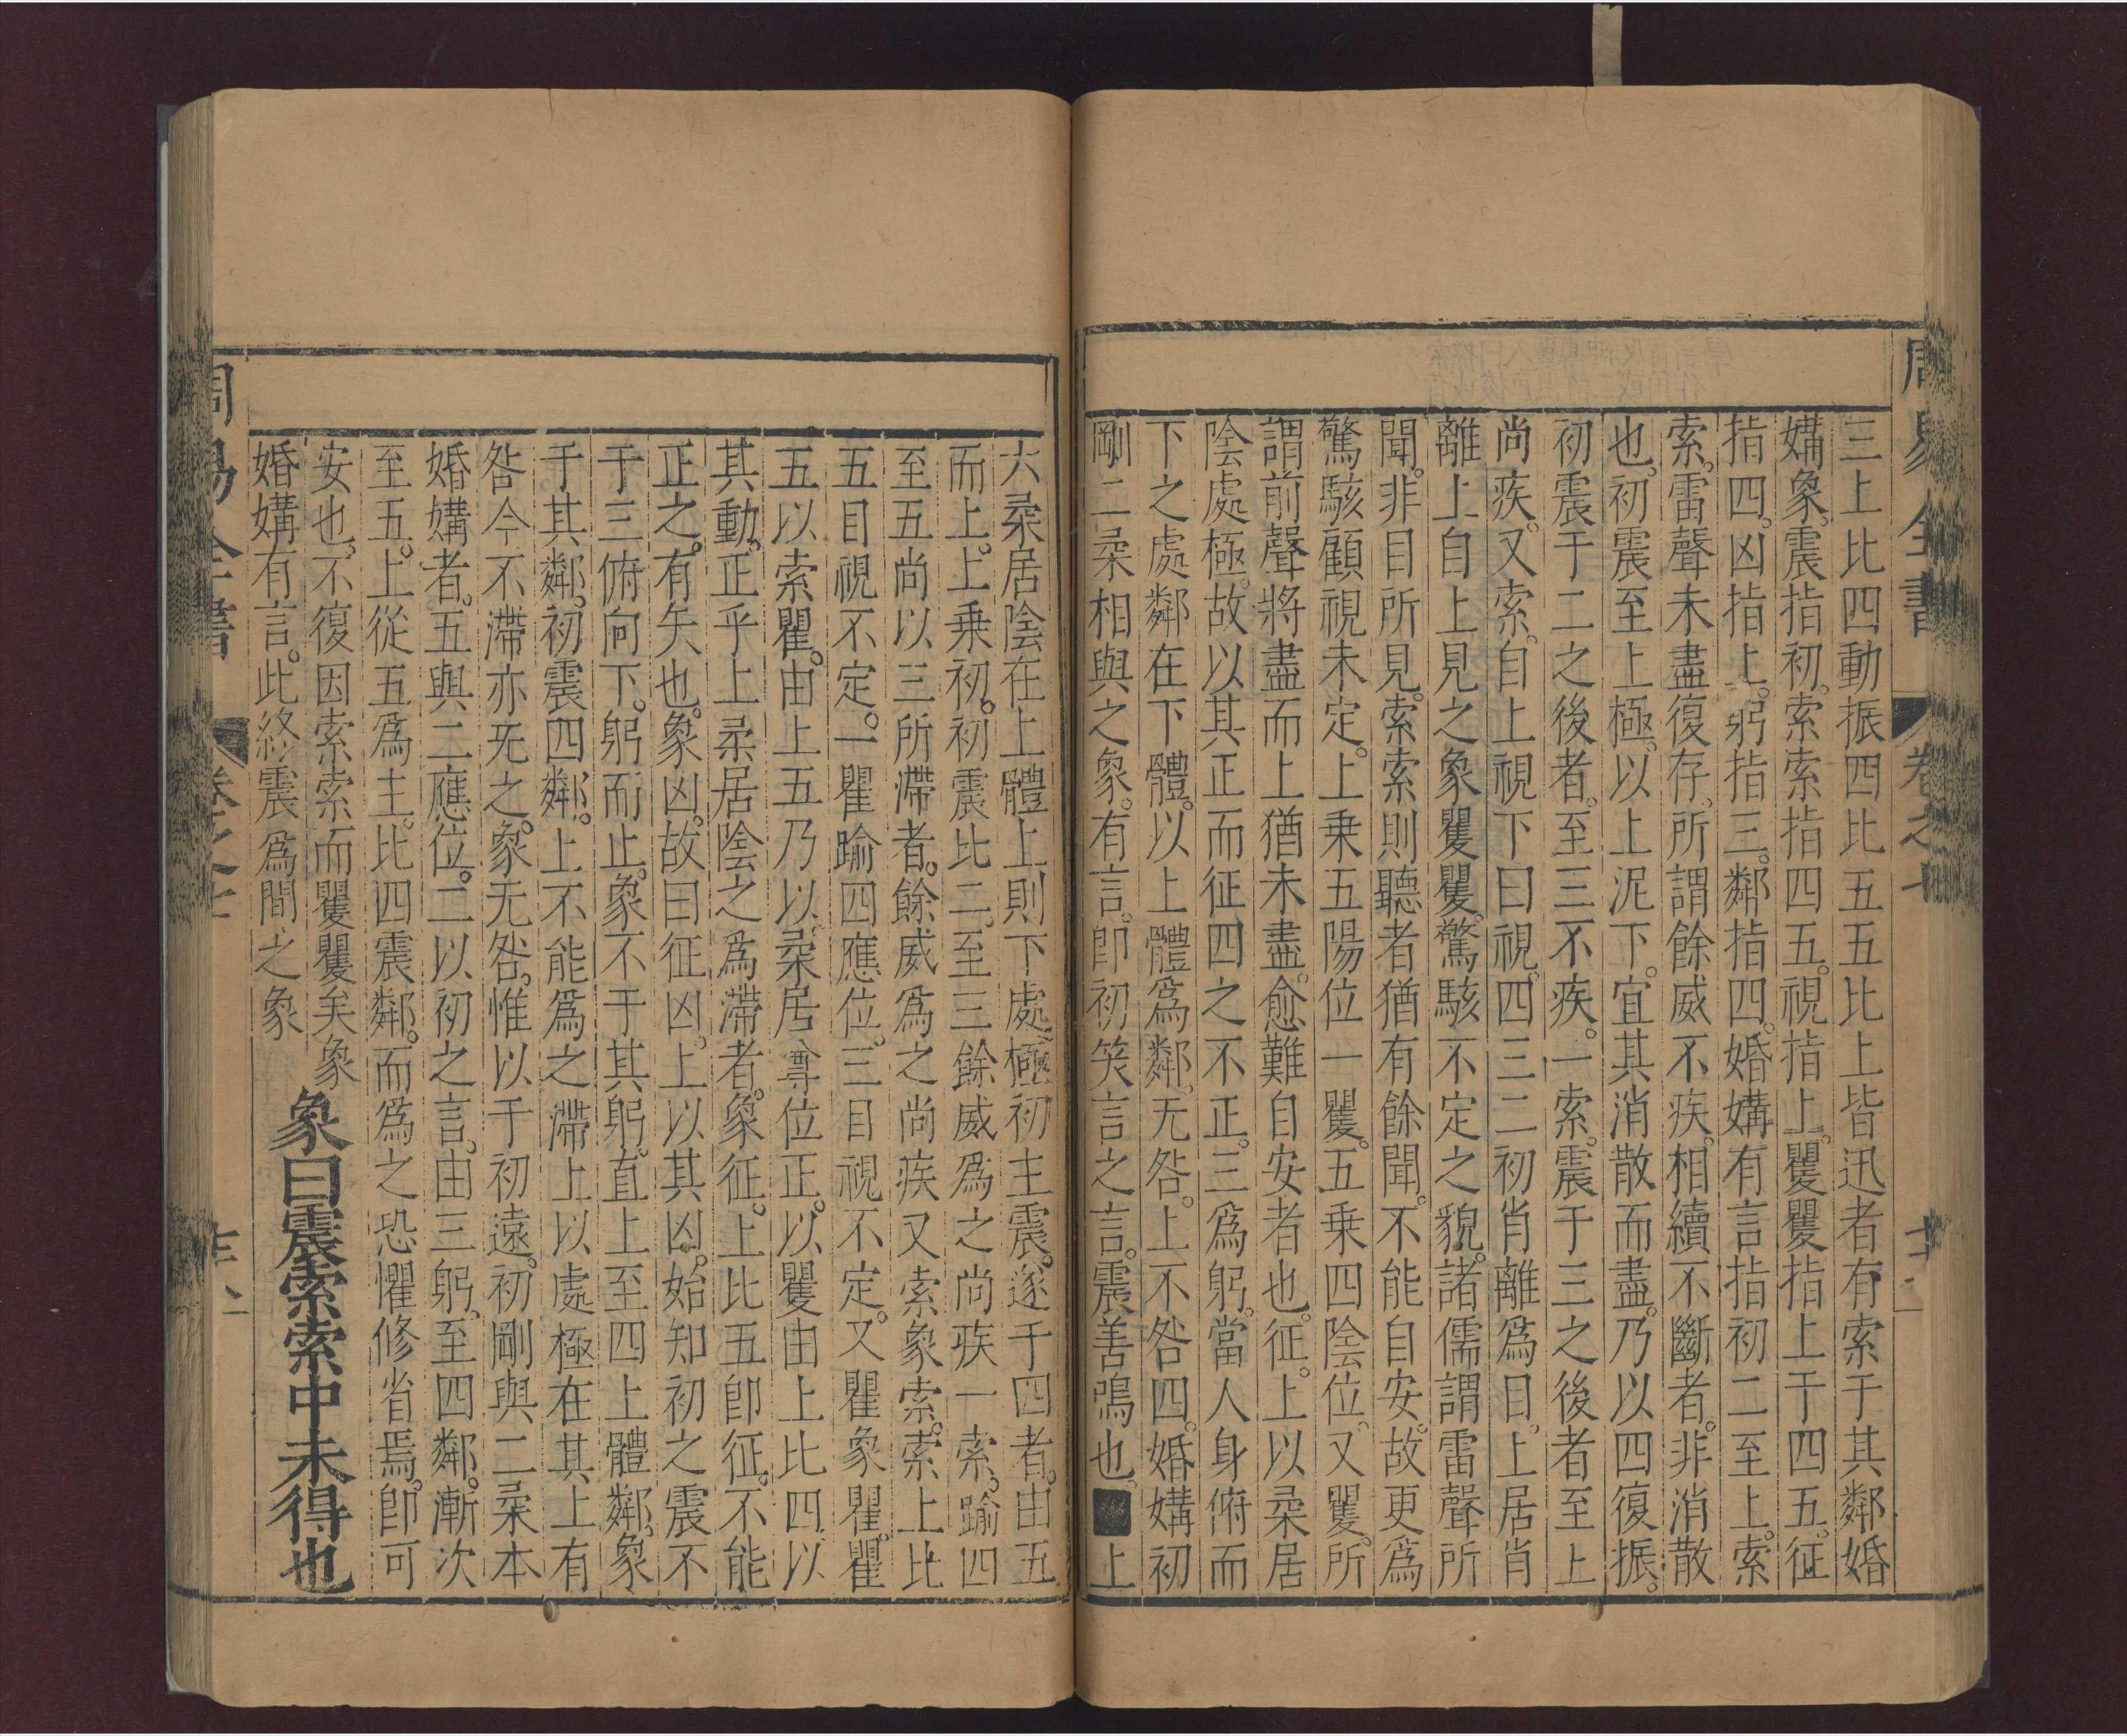 三上比四動振四比五五比上皆迅者有索于其鄰婚
媾象震指初。索索指四五。視指上。矍矍指上于四五。征
指四。凶指上。躬指三。鄰指四。婚媾有言指初二至上。索
索。雷聲未盡復存。所謂餘威不疾。相續不斷者。非消散
也。初震至上極。以上泥下。宜其消散而盡。乃以四復振。
初震于二之後者。至三不疾。一索。震于三之後者至上
尚疾。又索。自上視下曰視。四三二初肖離爲目。上居肖
離上自上見之象矍矍。驚駭不定之貌。諸儒謂雷聲所
聞。非目所見。索索則聽者猶有餘聞。不能自安。故更爲
驚駭顧視未定。上乗五陽位一矍。五乗四陰位。又矍。所
謂前聲將盡而上猶未盡。愈難自安者也。征。上以柔居
陰處極。故以其正而征四之不正。三爲躬。當人身俯而
下之處鄰在下體。以上體爲鄰。无咎。上不咎四。婚媾初
剛二柔相與之象。有言。卽初笑言之言。震善鳴也。上
六柔居陰在上體上則下處極初主震。遂于四者。由五
而上。上乗初。初震比二。至三餘威爲之尚疾一索。踰四
至五尚以三所滯者。餘威爲之尚疾又索象索。索上比
五目視不定。一瞿踰四應位。三目視不定。又瞿象瞿。瞿
五以索瞿。由上五乃以柔居尊位正。以矍由上比四以
其動。正乎上柔居陰之爲滯者。象征。上比五卽征。不能
正之。有矢也。象凶。故曰征凶。上以其凶。始知初之震不
于三俯向下。躬而止。象不于其躬。直上至四上體鄰。象
于其鄰。初震四鄰。上不能爲之滯上以處極在其上有
咎今不滯亦无之。象无咎。惟以于初遠。初剛與二柔本
婚媾者。五與二應位。二以初之言。由三躬至四鄰。漸次
至五。上從五爲主。比四震鄰。而爲之恐懼修省焉。卽可
安也。不復因索索而矍矍矣象
婚媾有言。此終震爲間之象
象曰震索索中未得也
周易全書
卷之十
周易全書